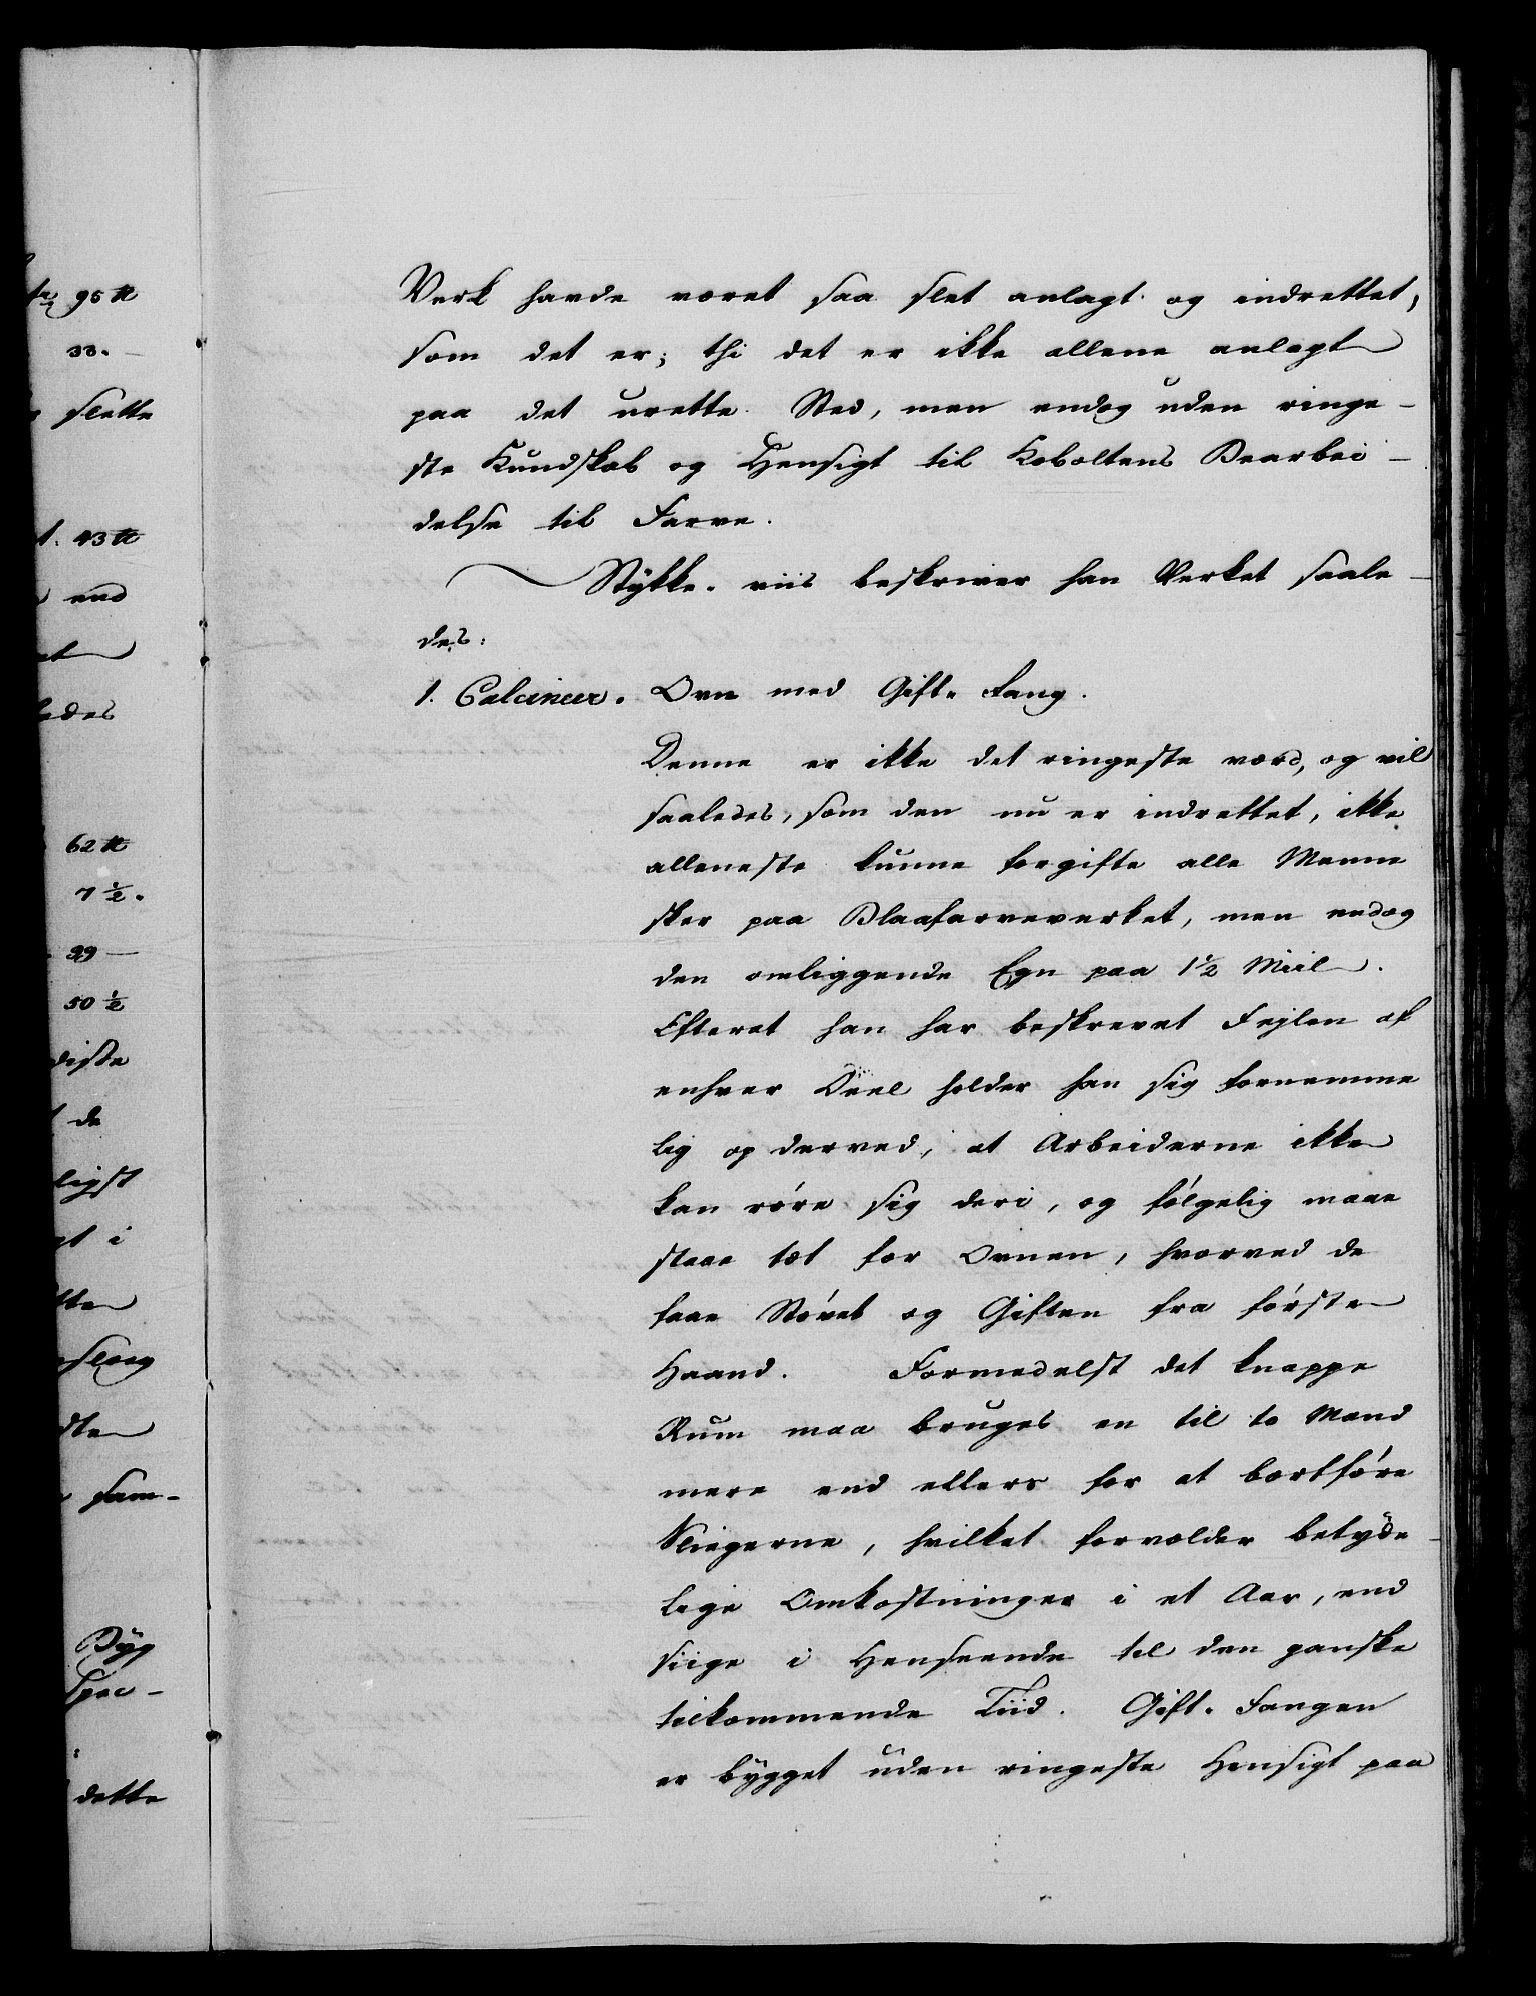 Verk havde været saa slet anlagt og indrettet,
som det er; thi det er ikke allene anlagt
paa det urette Sted, men endog uden ringe-
ste Kundskab og Hensigt til Koboltens Bearbei-
delse til Farve.
Stykke-viis beskriver han Verket saale-
des:
1. Calcineer-Ovn med Gift-Fang.
Denne er ikke det ringeste værd, og vil
saaledes, som den nu er indrettet, ikke
alleneste kunne forgifte alle Menne
sker paa Blaafarveverket, men endog
den omliggende Egn paa 1½ Miil.
Efterat han har beskrevet Fejlen af
enhver Deel holder han sig fornemme
lig op derved, at Arbeiderne ikke
kan røre sig deri, og følgelig maae
staae tæt for Ovnen, hvorved de
faae Støvet og Giften fra første
Haand. Formedelst det knappe
Rum maa bruges en til to Mand
mere end ellers for at bortføre
Sliegerne, hvilket forvolder betyde-
lige Omkostninger i et Aar, end
siige i Henseende til den ganske
tilkommende Tiid. Gift-Fangen
er bygget uden ringeste Hensigt paa
95 ℔
33.
slette
43 ℔
end
ledes
62 ℔
7 ½.
99 —
50 ½
diste
de
ligst
i
dten
sam-
Byg
Spec-
dette